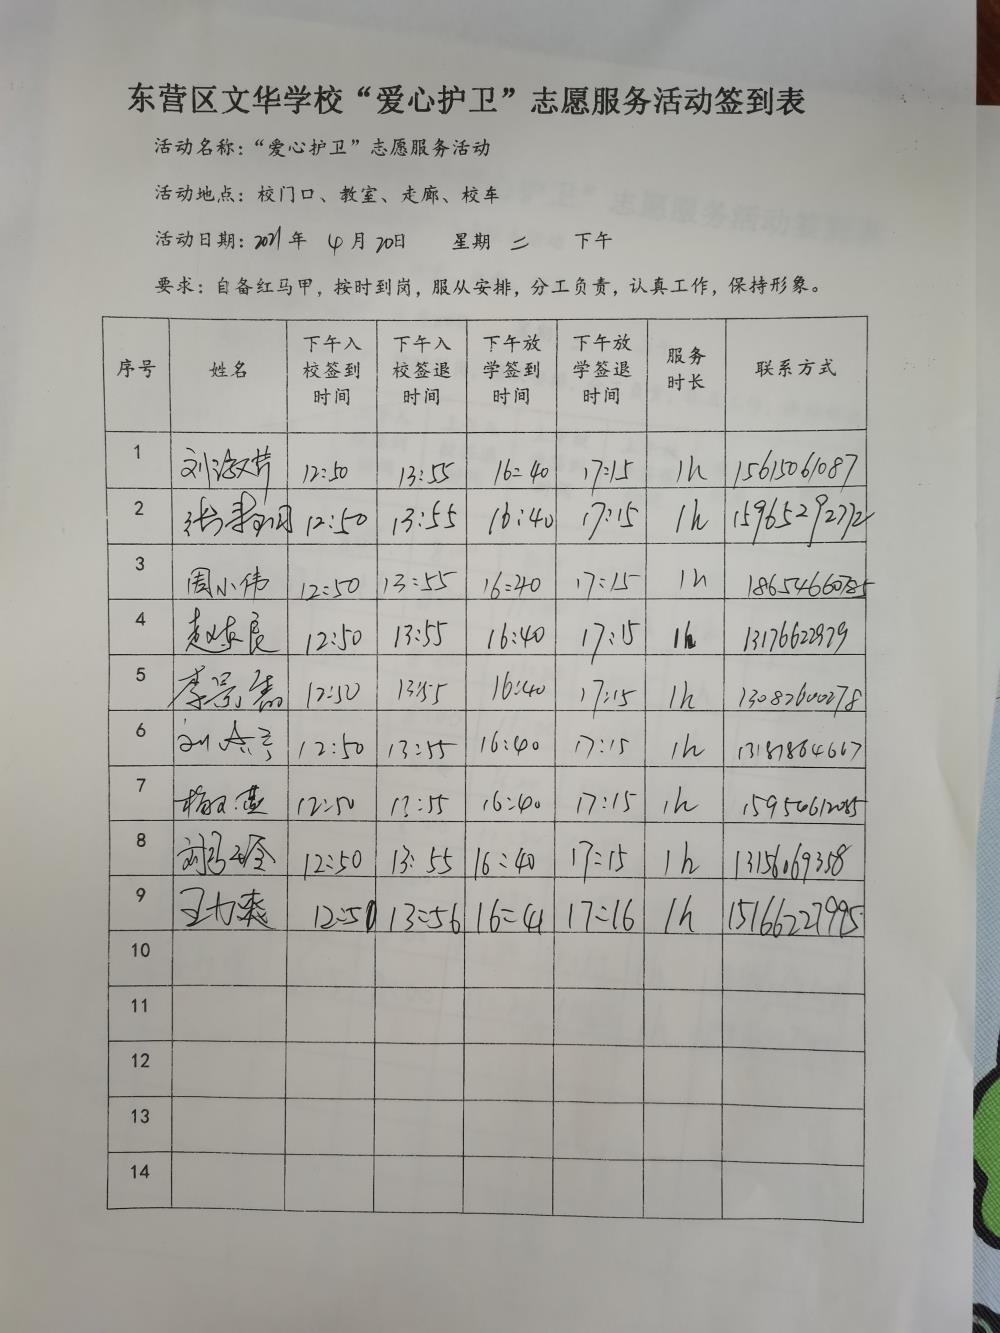 东营区文华学校“爱心护卫”志愿服务活动签到表
活动名称：“爱心护卫”志愿服务活动
活动地点：校门口、教室、走廊、校车
活动日期：2021年 4月20日 星期 二 下午
要求：自备红马甲，按时到岗，服从安排，分工负责，认真工作，保持形象。
序号 姓名 下午入校签到时间 下午入校签退时间 下午放学签到时间 下午放学签退时间 服务时长 联系方式
1 12:50 13:55 16:40 17:15 1h 15615061087
2 12:50 13:55 16:40 17:15 1h 15965292772
3 周小伟 12:50 13:55 16:40 17:15 1h 18654660785
4 12:50 13:55 16:40 17:15 1h 13176622979
5 12:50 13:55 16:40 17:15 1h 13082600278
6 12:50 13:55 16:40 17:15 1h
7 12:50 13:55 16:40 17:15 1h
8 12:50 13:55 16:40 17:15 1h 13156069358
9 王力爽 12:51 13:56 16:41 17:16 1h 15166227995
10
11
12
13
14